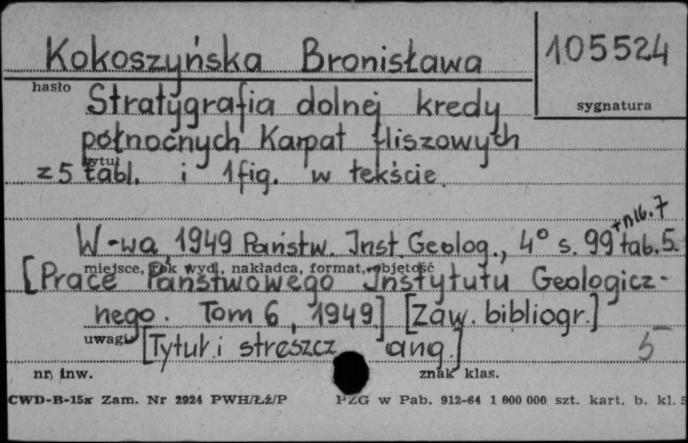 Kokoszyńska Bronisława 105524
hasło sygnatura
Stratygrafia dolnej kredy
północnych Karpat fliszowych
tytuł
z 5 tabl. i 1 fig. w tekście.
W-wa, 1949 Państw. Inst. Geolog., 4° s. 99 tab. 5.
miejsce, rok wyd., nakładca, format, objętość
[Prace Państwowego Instytutu Geologicz-
nego. Tom 6, 1949.] [Zaw. bibliogr.]
uwagi
[Tytuł i streszcz. ang.] 5
nr inw. znak klas.
CWD-B-15a Zam. Nr 2924 PWH/Łż/P PZG w Pab. 912-64 1 000 000 szt. kart. b. kl. 5